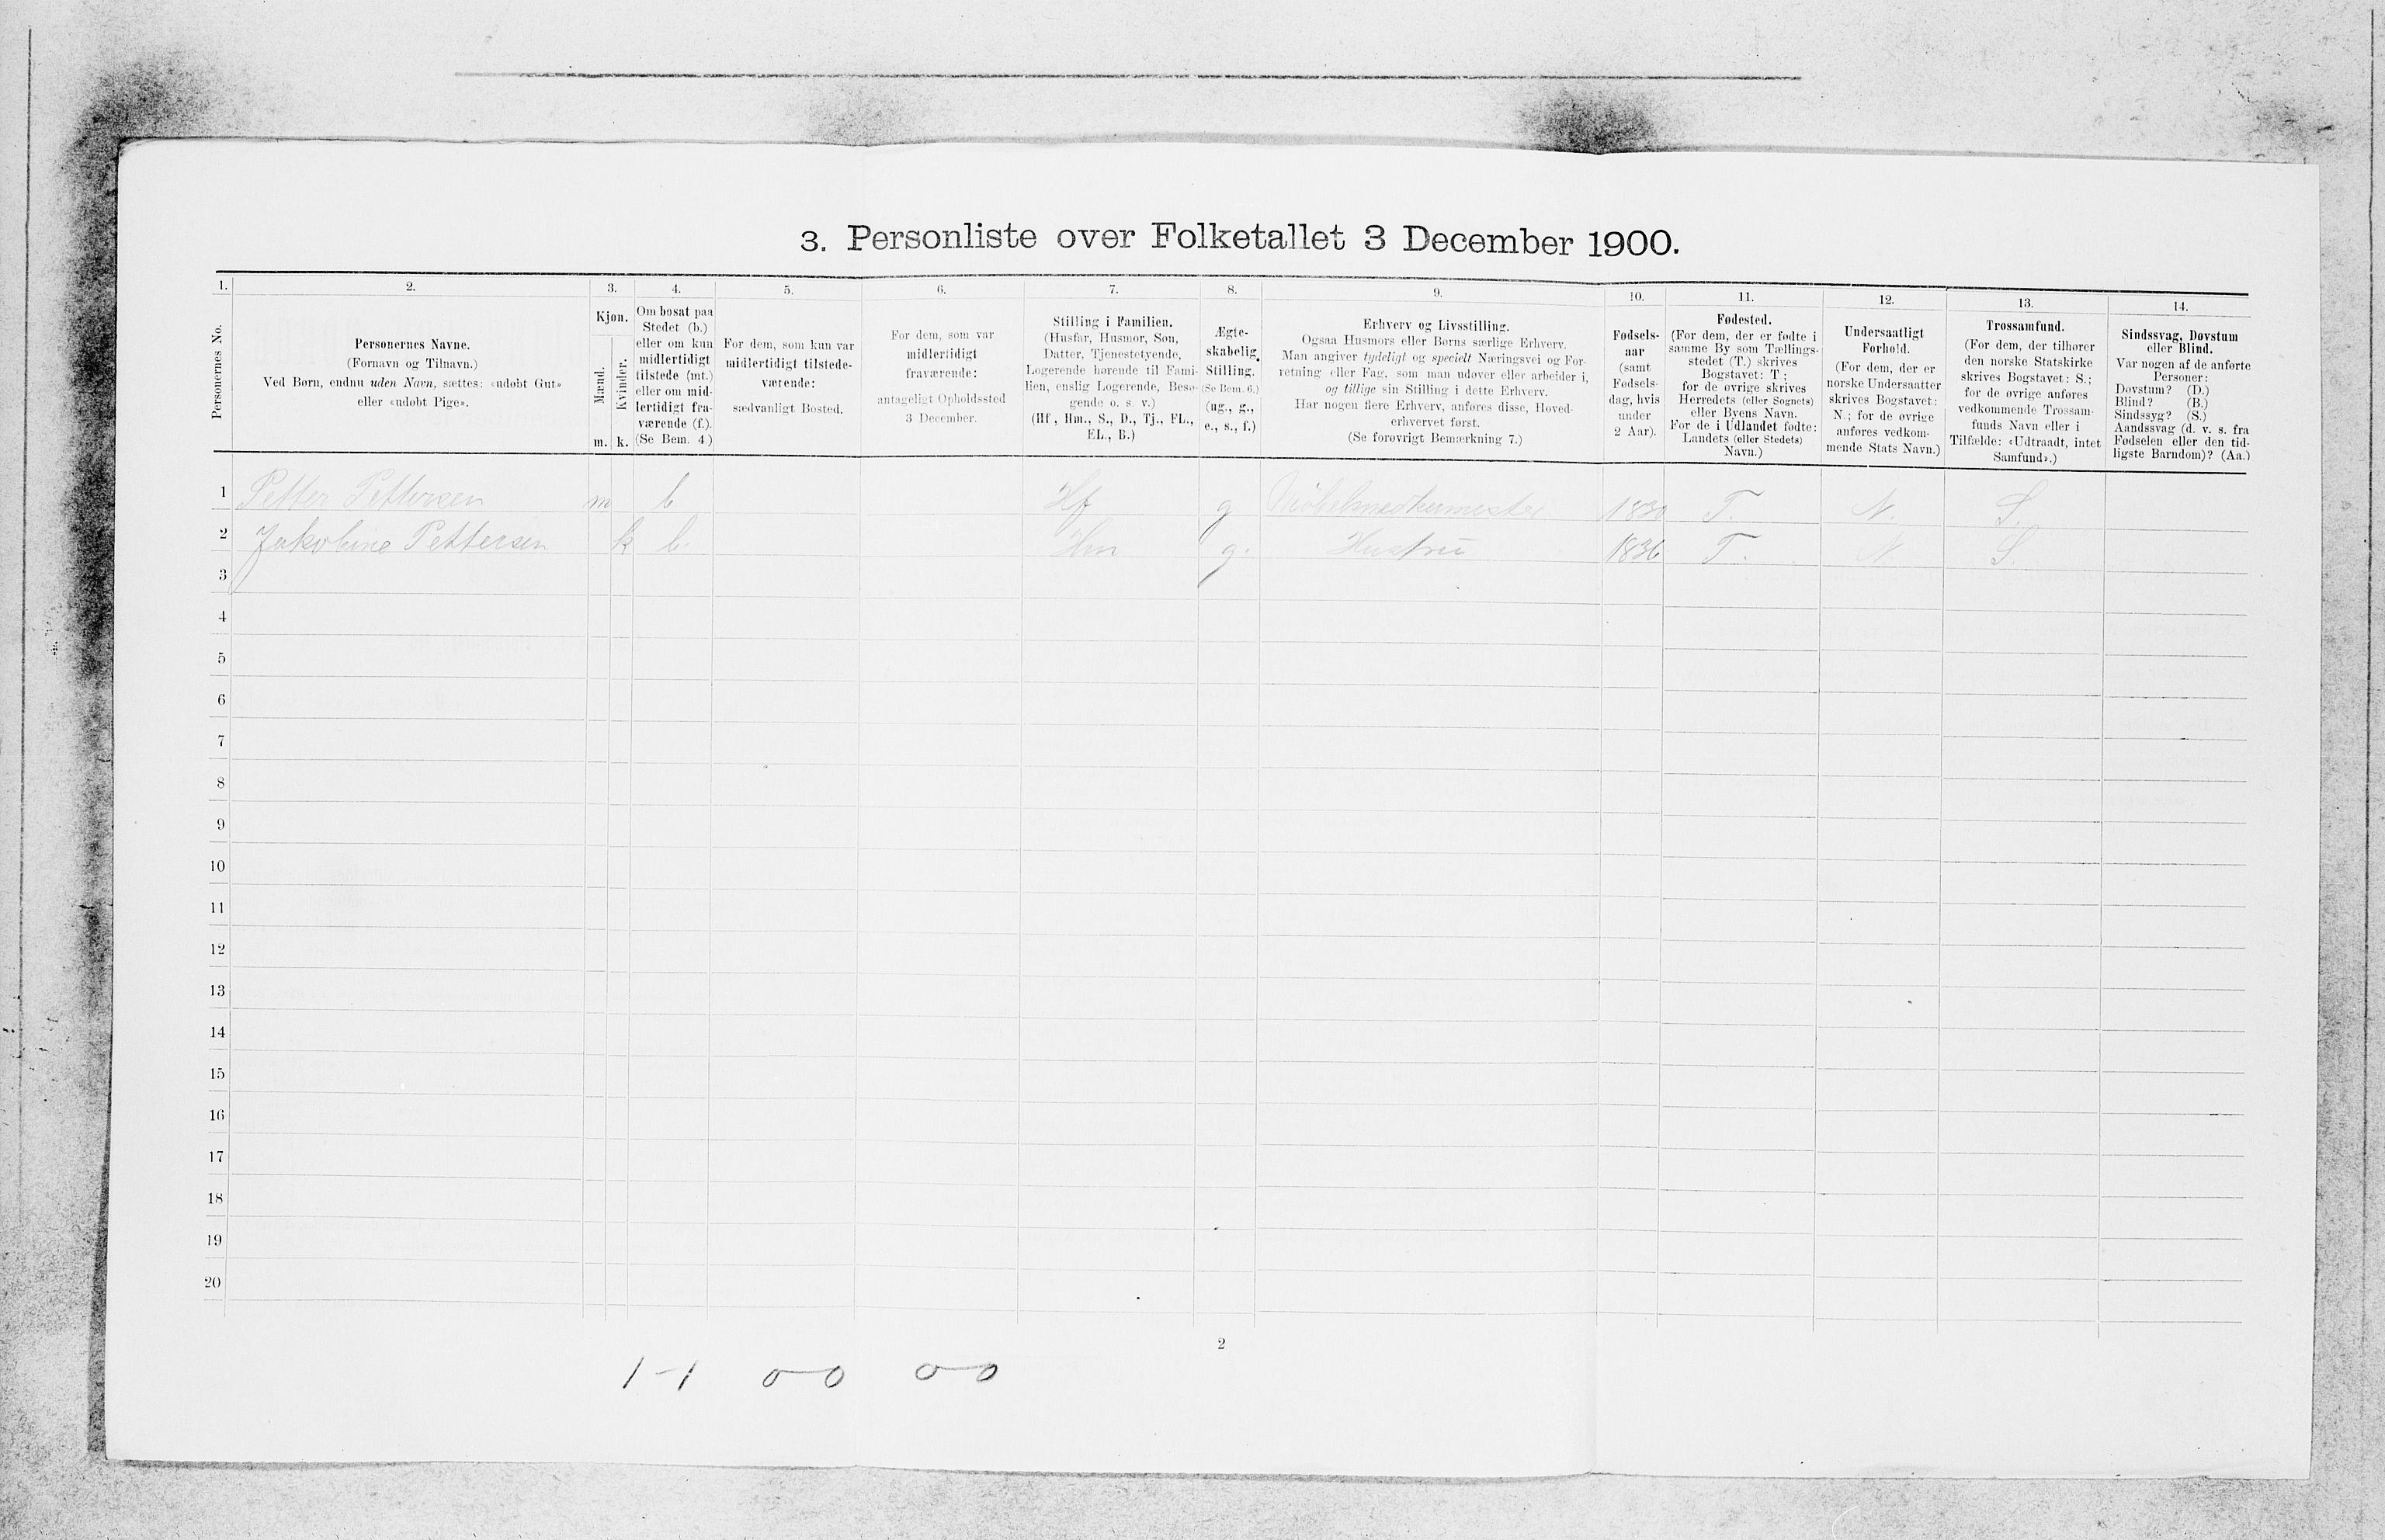 3. Personliste over Folketallet 3 December 1900.
1. 2. 3. 4. 5. 6. 7. 8. 9. 10. 11. 12. 13. 14.
Personernes No.
Personernes Navne.
(Fornavn og Tilnavn.)
Ved Børn, endnu uden Navn, sættes: «udøbt Gut»
eller «udøbt Pige».
Kjøn.
Mænd.
Kvinder.
m. k.
Om bosat paa
Stedet (b.)
eller om kun
midlertidigt
tilstede (mt.)
eller om mid-
lertidigt fra-
værende (f.).
(Se Bem. 4.)
For dem, som kun var
midlertidigt tilstede-
værende:
sædvanligt Bosted.
For dem, som var
midlertidigt
fraværende:
antageligt Opholdssted
3 December.
Stilling i Familien.
(Husfar, Husmor, Søn,
Datter, Tjenestetyende,
Logerende hørende til Fami-
lien, enslig Logerende, Besø-
gende o. s. v.)
(Hf., Hm., S., D., Tj., FL.,
EL., B.)
Ægte-
skabelig
Stilling.
(Se Bem. 6.)
(ug., g.,
e., s., f.)
Erhverv og Livsstilling.
Ogsaa Husmors eller Børns særlige Erhverv.
Man angiver tydeligt og specielt Næringsvei og For-
retning eller Fag, som man udøver eller arbeider i,
og tillige sin Stilling i dette Erhverv.
Har nogen flere Erhverv, anføres disse, Hoved-
erhvervet først.
(Se forøvrigt Bemærkning 7.)
Fødsels-
aar
(samt
Fødsels-
dag, hvis
under
2 Aar).
Fødested.
(For dem, der er fødte i
samme By som Tællings-
stedet (T.) skrives
Bogstavet: T;
for de øvrige skrives
Herredets (eller Sognets)
eller Byens Navn.
For de i Udlandet fødte:
Landets (eller Stedets)
Navn.)
Undersaatligt
Forhold.
(For dem, der er
norske Undersaatter
skrives Bogstavet:
N.; for de øvrige
anføres vedkom-
mende Stats Navn.)
Trossamfund.
(For dem, der tilhører
den norske Statskirke
skrives Bogstavet: S.;
for de øvrige anføres
vedkommende Trossam-
funds Navn eller i
Tilfælde: «Udtraadt, intet
Samfund».)
Sindssvag, Døvstum
eller Blind.
Var nogen af de anførte
Personer:
Døvstum? (D.)
Blind? (B.)
Sindssyg? (S.)
Aandssvag (d. v. s. fra
Fødselen eller den tid-
ligste Barndom)? (Aa.)
1 Petter Pettersen m b Hf g Møbelsnedkermester 1830 T. N. S.
2 Jakobine Pettersen k b. Hm g. Hustru 1836 T. N S
3
4
5
6
7
8
9
10
11
12
13
14
15
16
17
18
19
20
2
1-1 0-0 0-0